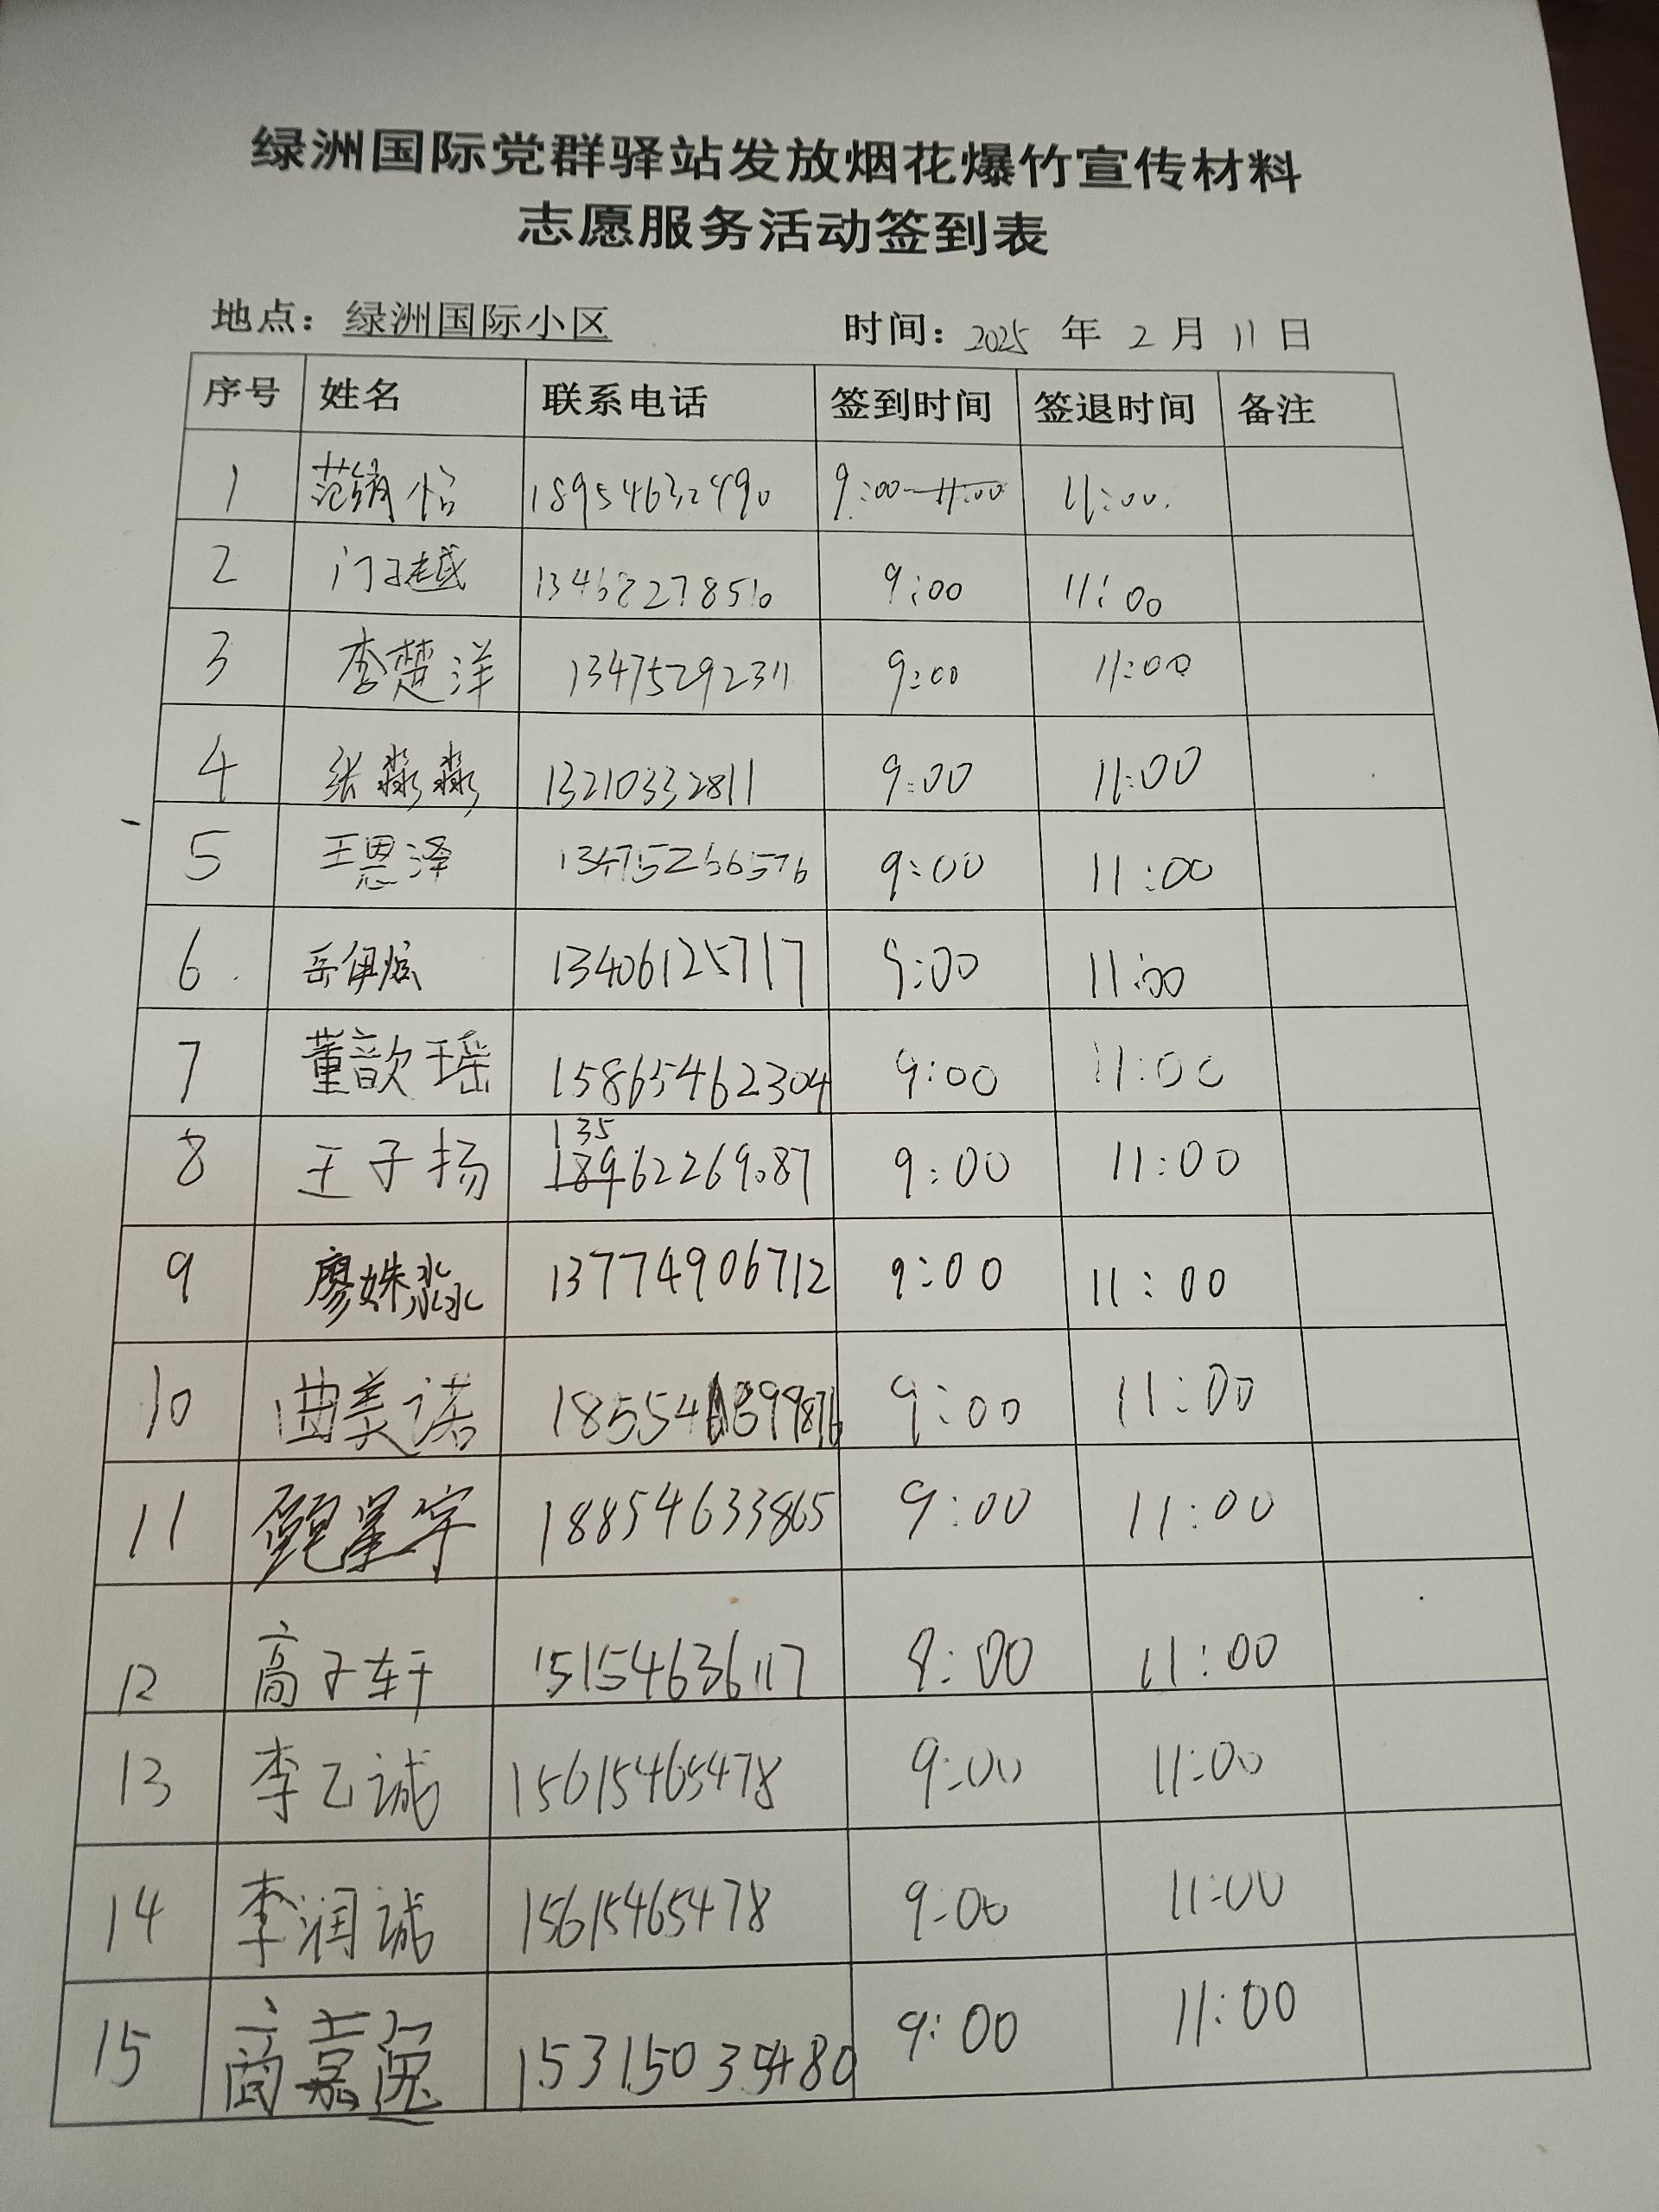 绿洲国际党群驿站发放烟花爆竹宣传材料
志愿服务活动签到表
地点：绿洲国际小区 时间：2025 年 2 月 11 日
序号 姓名 联系电话 签到时间 签退时间 备注
1 范绮怡 18954632490 9:00-11:00 11:00.
2 门子越 13468278510 9:00 11:00
3 李楚洋 13475292311 9:00 11:00
4 张淼淼 13210332811 9:00 11:00
5 王恩泽 13475266576 9:00 11:00
6 岳伊 13406125717 9:00 11:00
7 董歆瑶 15865462304 9:00 11:00
135
8 王子扬 18962269087 9:00 11:00
9 廖姝淼 13774906712 9:00 11:00
10 曲美诺 9:00 11:00
11 甄星宇 18854633865 9:00 11:00
12 高子轩 15154636117 9:00 11:00
13 李乙诚 15615465478 9:00 11:00
14 李润诚 15615465478 9:00 11:00
15 商嘉逸 15315035480 9:00 11:00